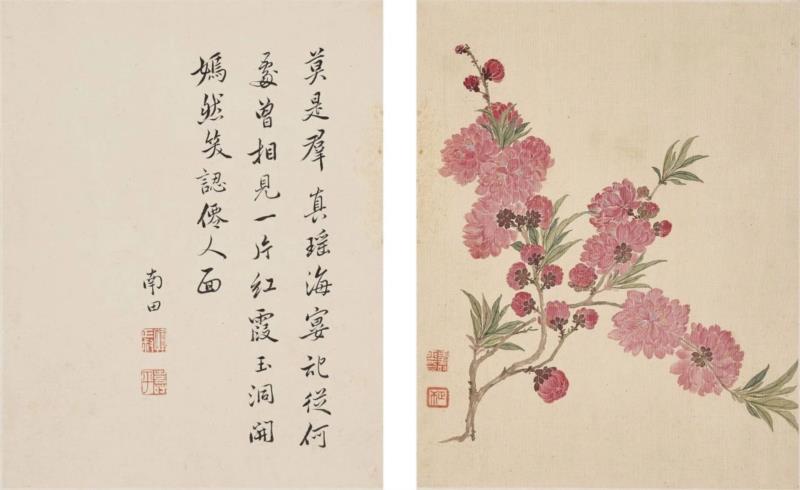 莫是羣真瑶海宴記從何
處曾相見一片紅霞玉洞開
嫣然笑認僊人面
南田